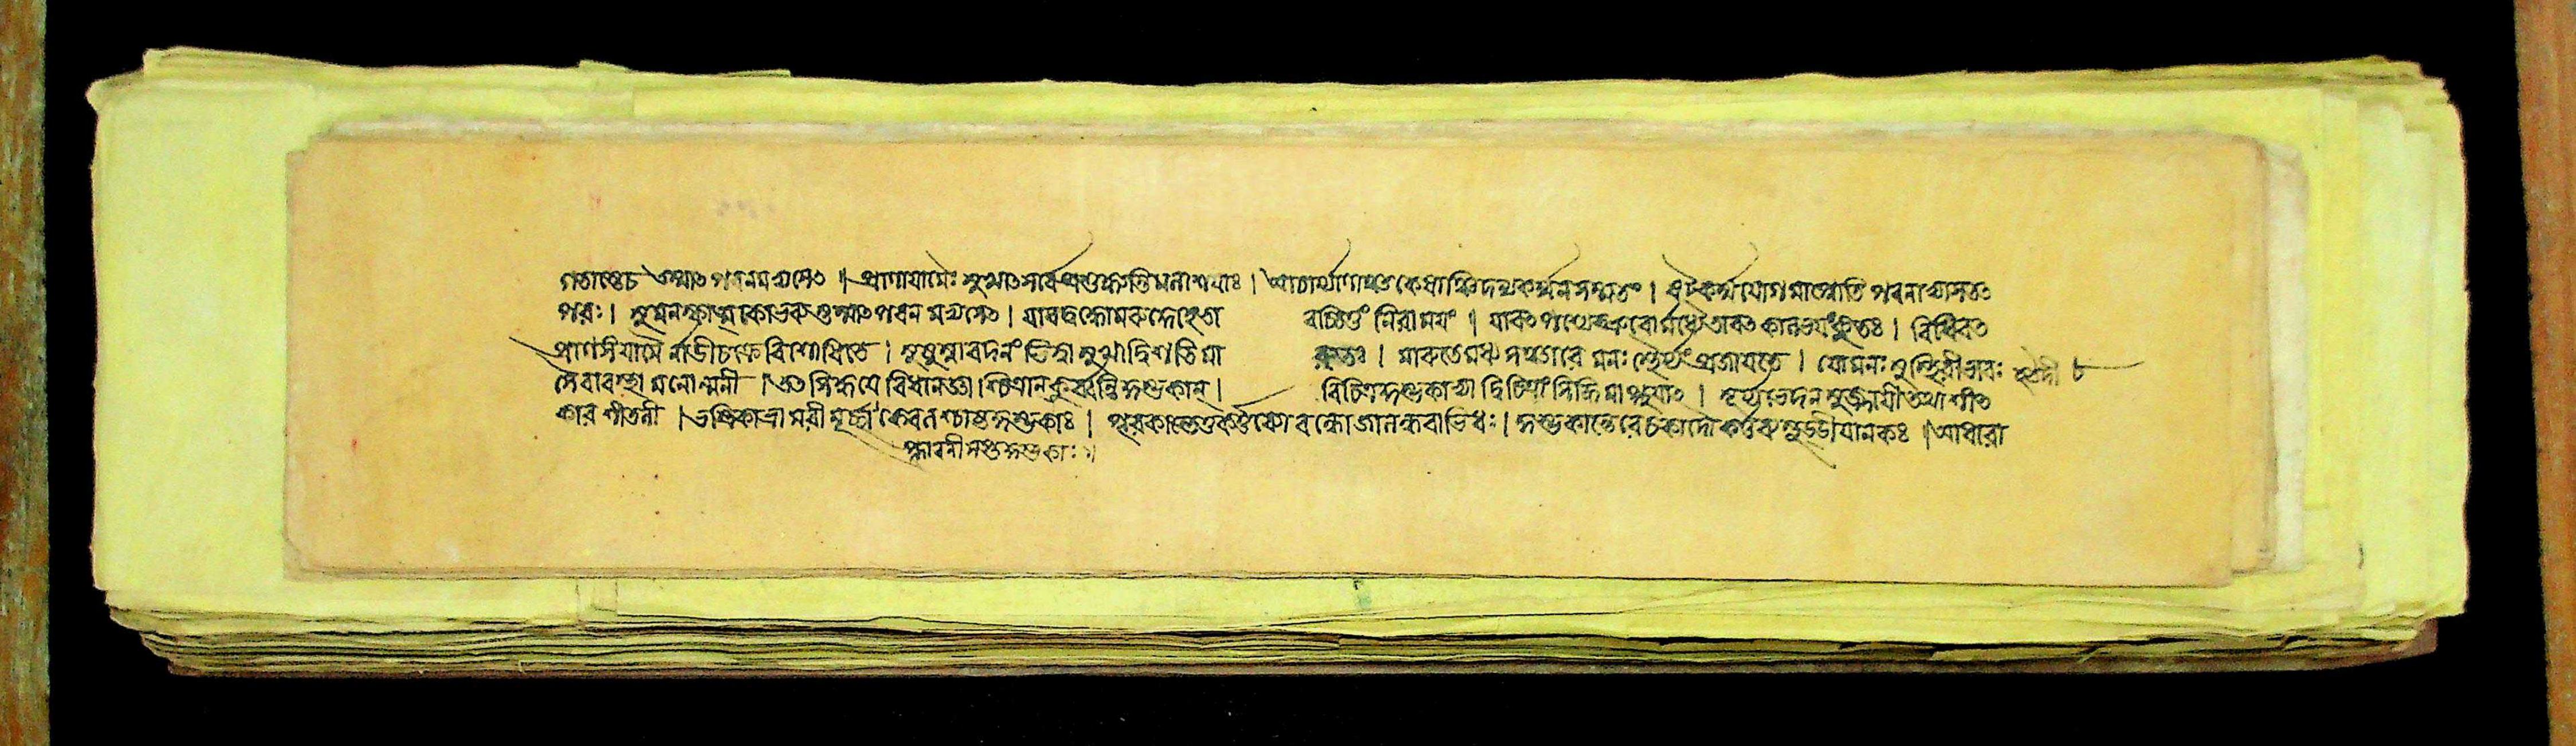 গতাস্তেচ তস্মাৎ পবনমভ্যসেৎ ॥ প্রাণাযামৈঃ সুখাৎ সর্বে প্রশুষ্যন্তি মলাশযাঃ । আচার্য্যাণান্তু কেষাঞ্চিদন্যকর্ম্ম ন সম্মতং । ষট্কর্ম্মযোগমাপ্নোতি পবনাভ্যাসতৎ
পরঃ । পবনমভ্যসেৎ । যাবদ্বদ্ধো মরুদ্দেহে তা বচ্চিত্তং নিরাময়ং । যাবৎ পশ্যেদ্ভ্রুবোর্মধ্যে তাবৎ কালভযং কুতঃ । বিধিবৎ
প্রাণসংযামৈ র্নাডীচক্রে বিশোধিতে । সুষুম্নাবদনং ভিত্ত্বা সুখাদ্বিশতি মা রুতঃ । মারুতে মধ্য সঞ্চারে মনঃ স্থৈর্য্যং প্রজাযতে । যো মনঃ সুস্থিরীভাবঃ
সৈবাবস্থা মনোন্মনী । তৎ সিদ্ধযে বিধানজ্ঞা শ্চিত্রান্ কুর্ব্বন্তি কুম্ভকান্ । বিচিত্রকুম্ভকাভ্যাদ্বিচিত্রাং সিদ্ধিমাপ্নুযাৎ । সূর্য্যভেদনমুজ্জাযী তথা শীৎ
কার শীতলী । ভস্ত্রিকা ভ্রামরী মূর্চ্ছা কেবলশ্চাষ্টকুম্ভকাঃ । পূরকান্তে তু কর্ত্তব্যো বন্ধো জালন্ধরাভিধঃ । কুম্ভকান্তে রেচকাদৌ কর্ত্তব্যস্তুড্ডীযানকঃ । আধারা
প্লাবনী কুম্ভকাঃ ॥